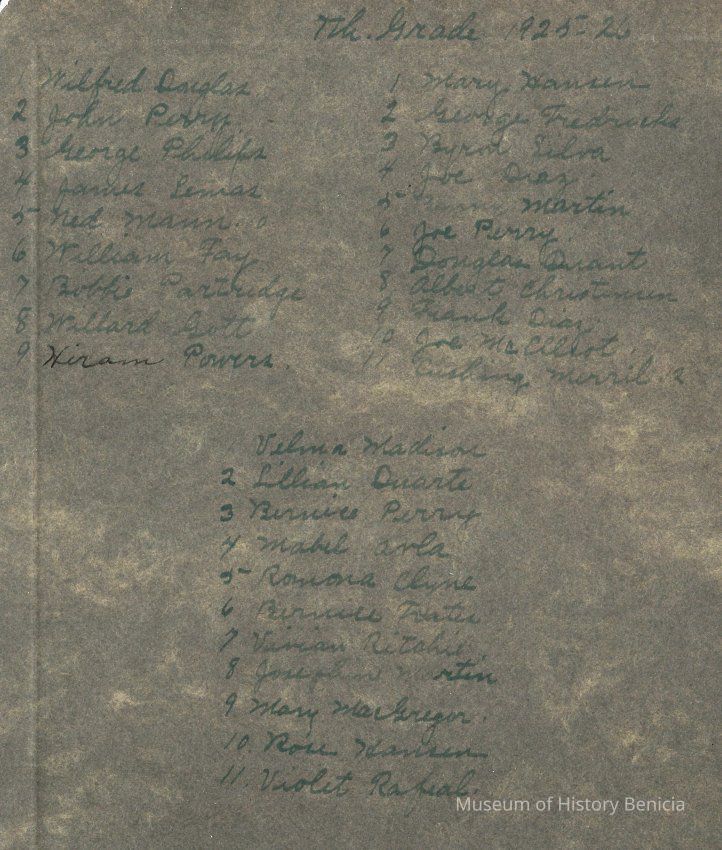 7th. Grade 1925-26
1 Wilfred Douglas
2 John Perry
3 George Philips
4 James Lemas
5 Ned Mann.
6 William Fay
7 Bobbie Partridge
8 Willard Gott
9 Hiram Powers.
1 Mary Hansen
2 George Fredricks
3 Byron Silva
4 Joe Diaz.
5 Martin
6 Joe Perry
7 Douglas Duant
8 Albert Christensen
9 Frank Diaz
10 Joe McElliot.
11 Cushing Merril.
Velma Madison
2 Lillian Duarte
3 Bernice Perry
4 Mabel Avla
5 Romona Clyne
6 Bernice
7 Vivian Ritchie
8 Josephin Martin
9 Mary MacGregor.
10. Rose Hansen
11. Violet Rapeal.
Museum of History Benicia